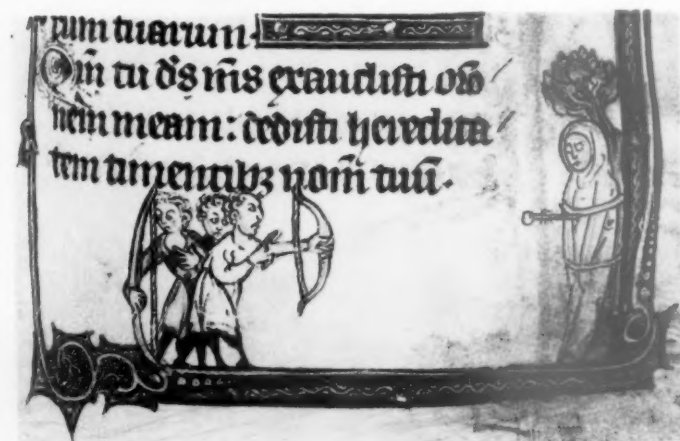 rum tuarum·
Qm̄ tu ds̄ ms̄ exaudisti orō
nem meam: dedisti heredita
tem timentibꝫ nom̄ tuū·